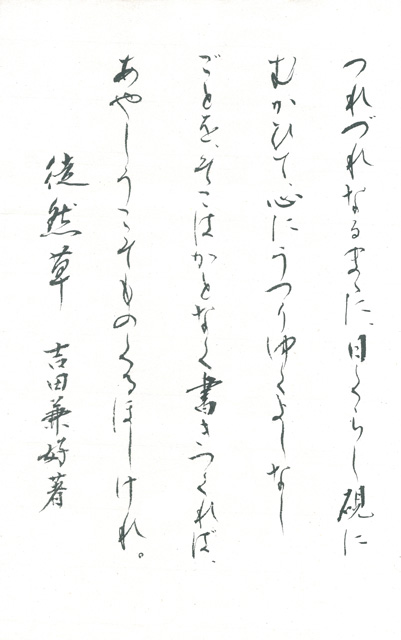 つれづれなるまゝに、日くらし硯に
むかひて、心にうつりゆくよしなし
ごとを、そこはかとなく書きつくれば、
あやしうこそものくるほしけれ。
徒然草 吉田兼好著